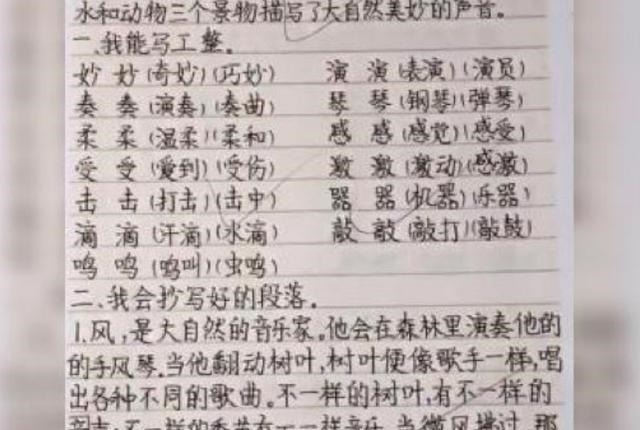 水和动物三个景物描写了大自然美妙的声音。
一、我能写工整。
妙 妙(奇妙)(巧妙) 演 演(表演)(演员)
奏 奏(演奏)(奏曲) 琴 琴(钢琴)(弹琴)
柔 柔(温柔)(柔和) 感 感(感觉)(感受)
受 受(受到)(受伤) 激 激(激动)(感激)
击 击(打击)(击中) 器 器(机器)(乐器)
滴 滴(汗滴)(水滴) 敲 敲(敲打)(敲鼓)
鸣 鸣(鸣叫)(虫鸣)
二、我会抄写好的段落。
1.风,是大自然的音乐家,他会在森林里演奏他的
的手风琴。当他翻动树叶,树叶便像歌手一样,唱
出各种不同的歌曲。不一样的树叶,有不一样的
声音;不一样的季节有不一样音乐。当微风拂过,那